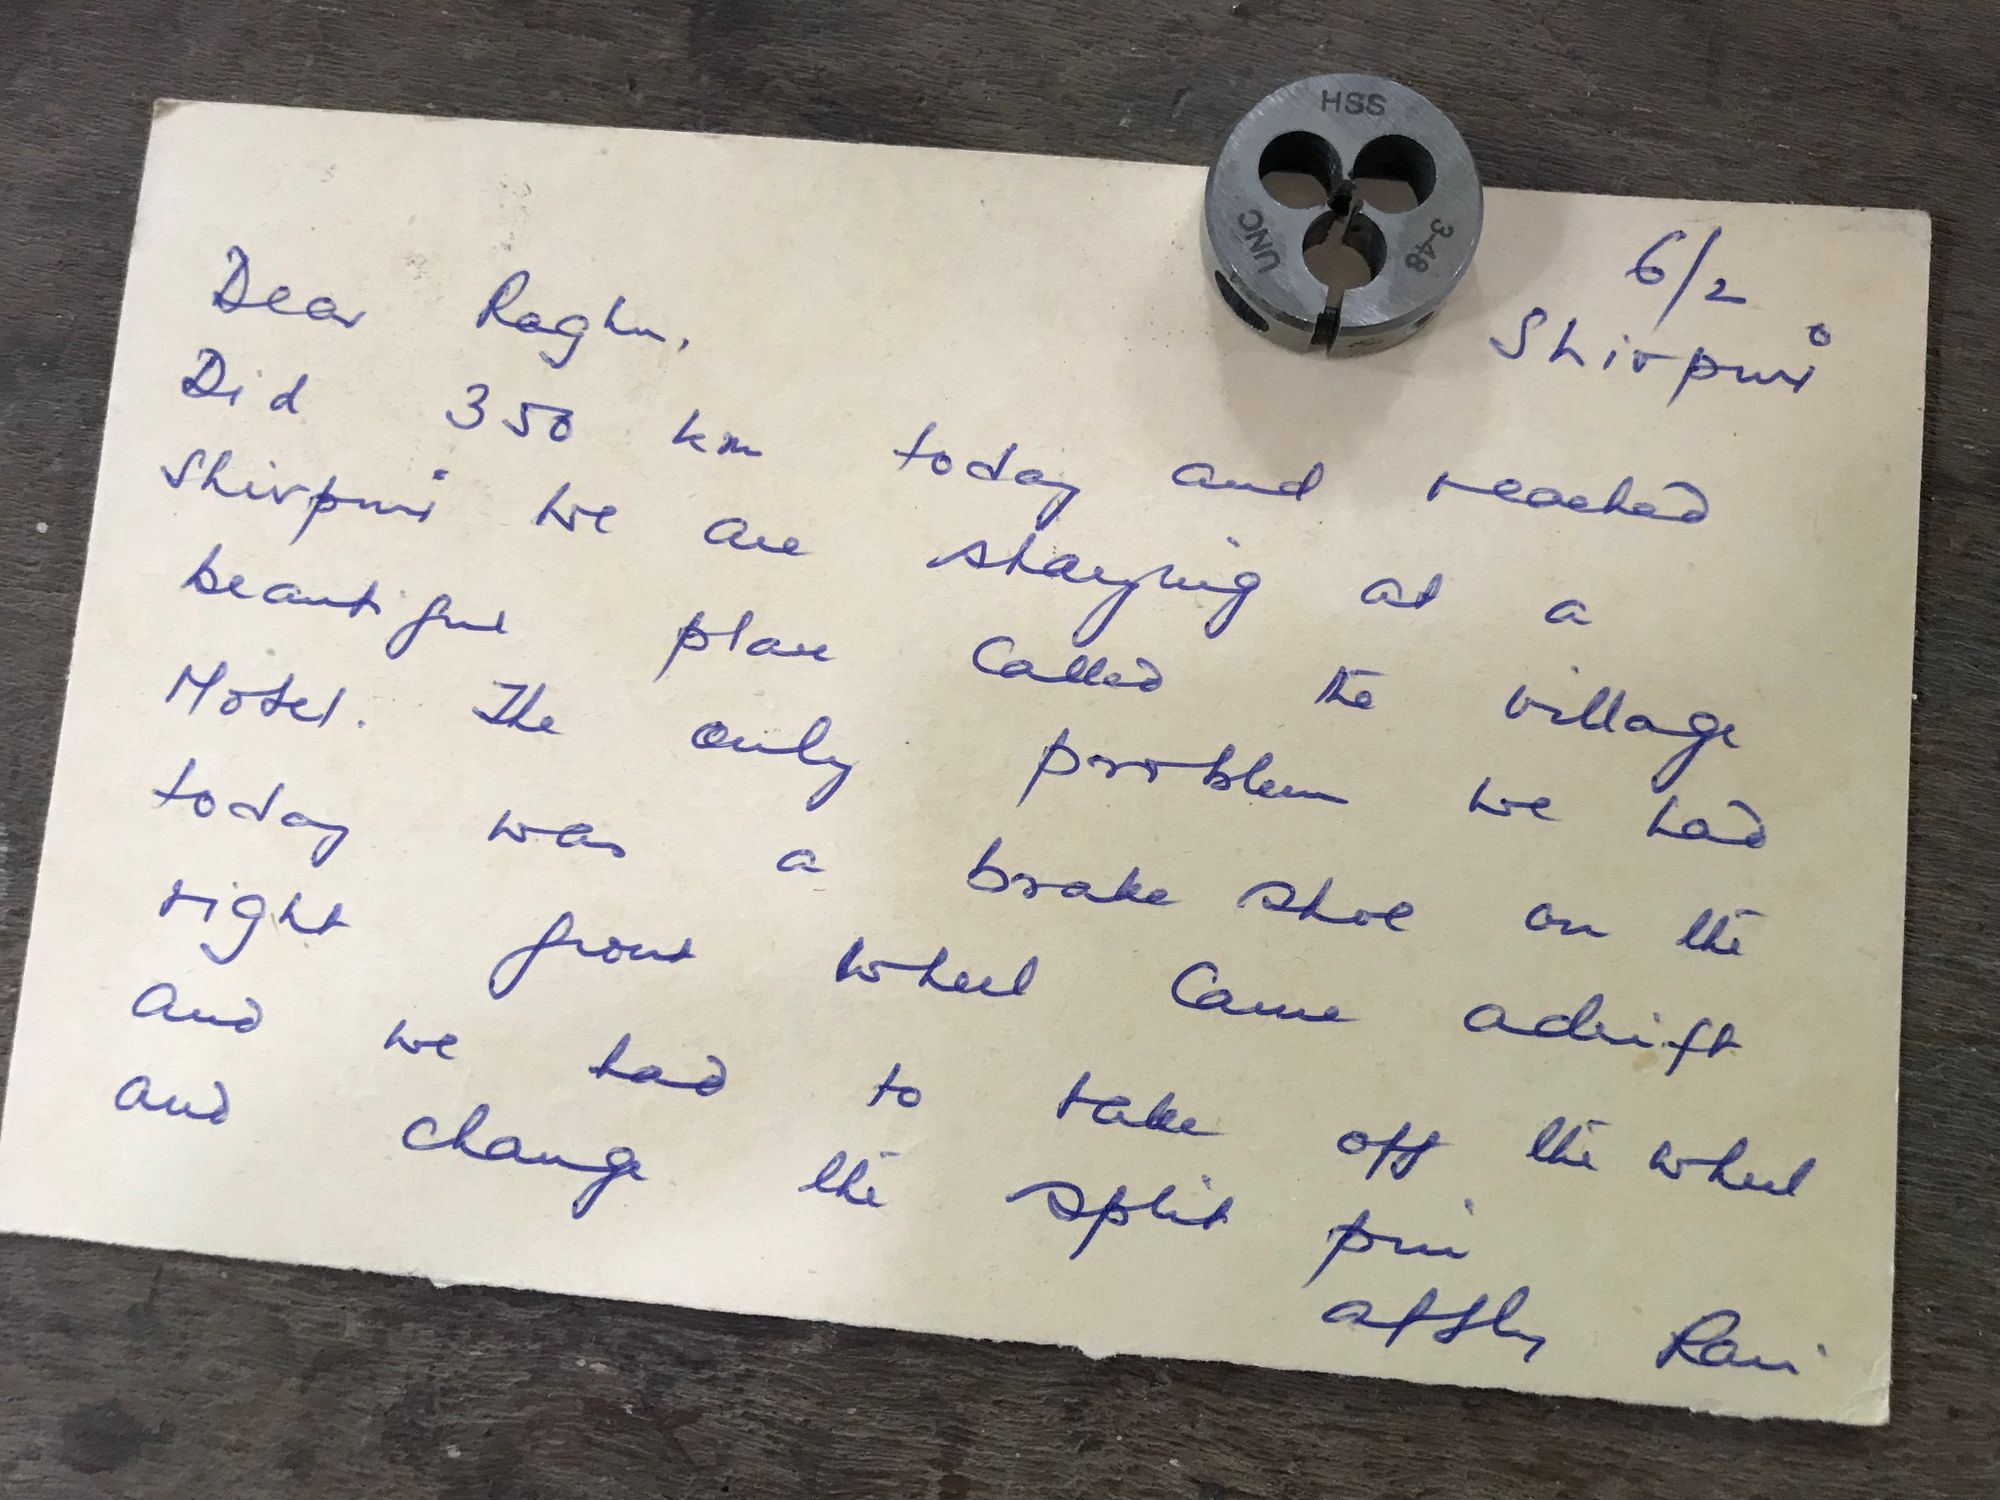 HSS
UNC
3-48
6/2
Shivpuri
Dear Raghu,
Did 350 km today and reached
Shivpuri we are staying at a
beautiful place called the village
Motel. The only problem we had
today was a brake shoe on the
right front wheel came adrift
and we had to take off the wheel
and change the split pin
affly Ravi